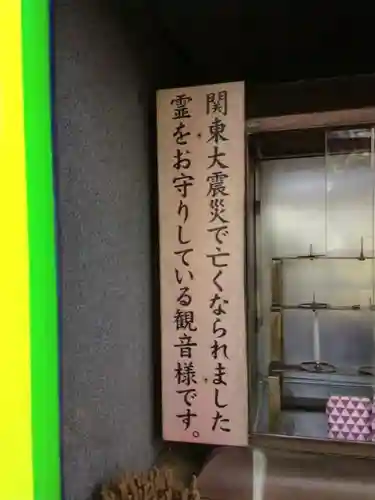 関東大震災で亡くなられました
霊をお守りしている観音様です。